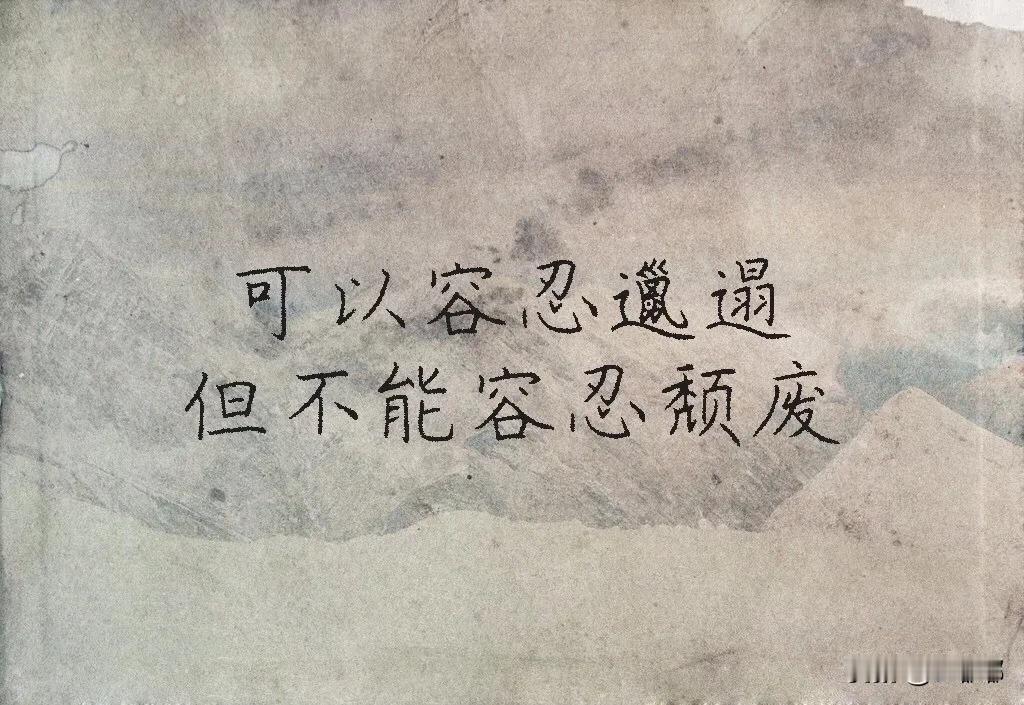 可以容忍邋遢
但不能容忍颓废